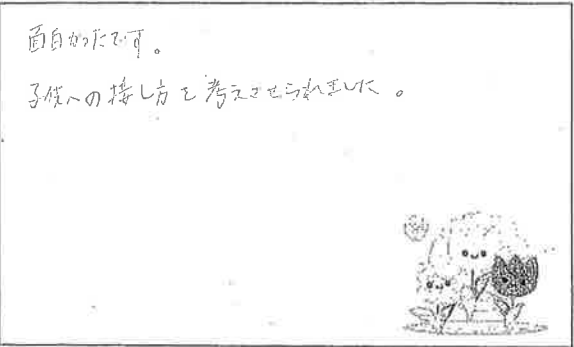 面白かったです。
子供への接し方を考えさせられました。